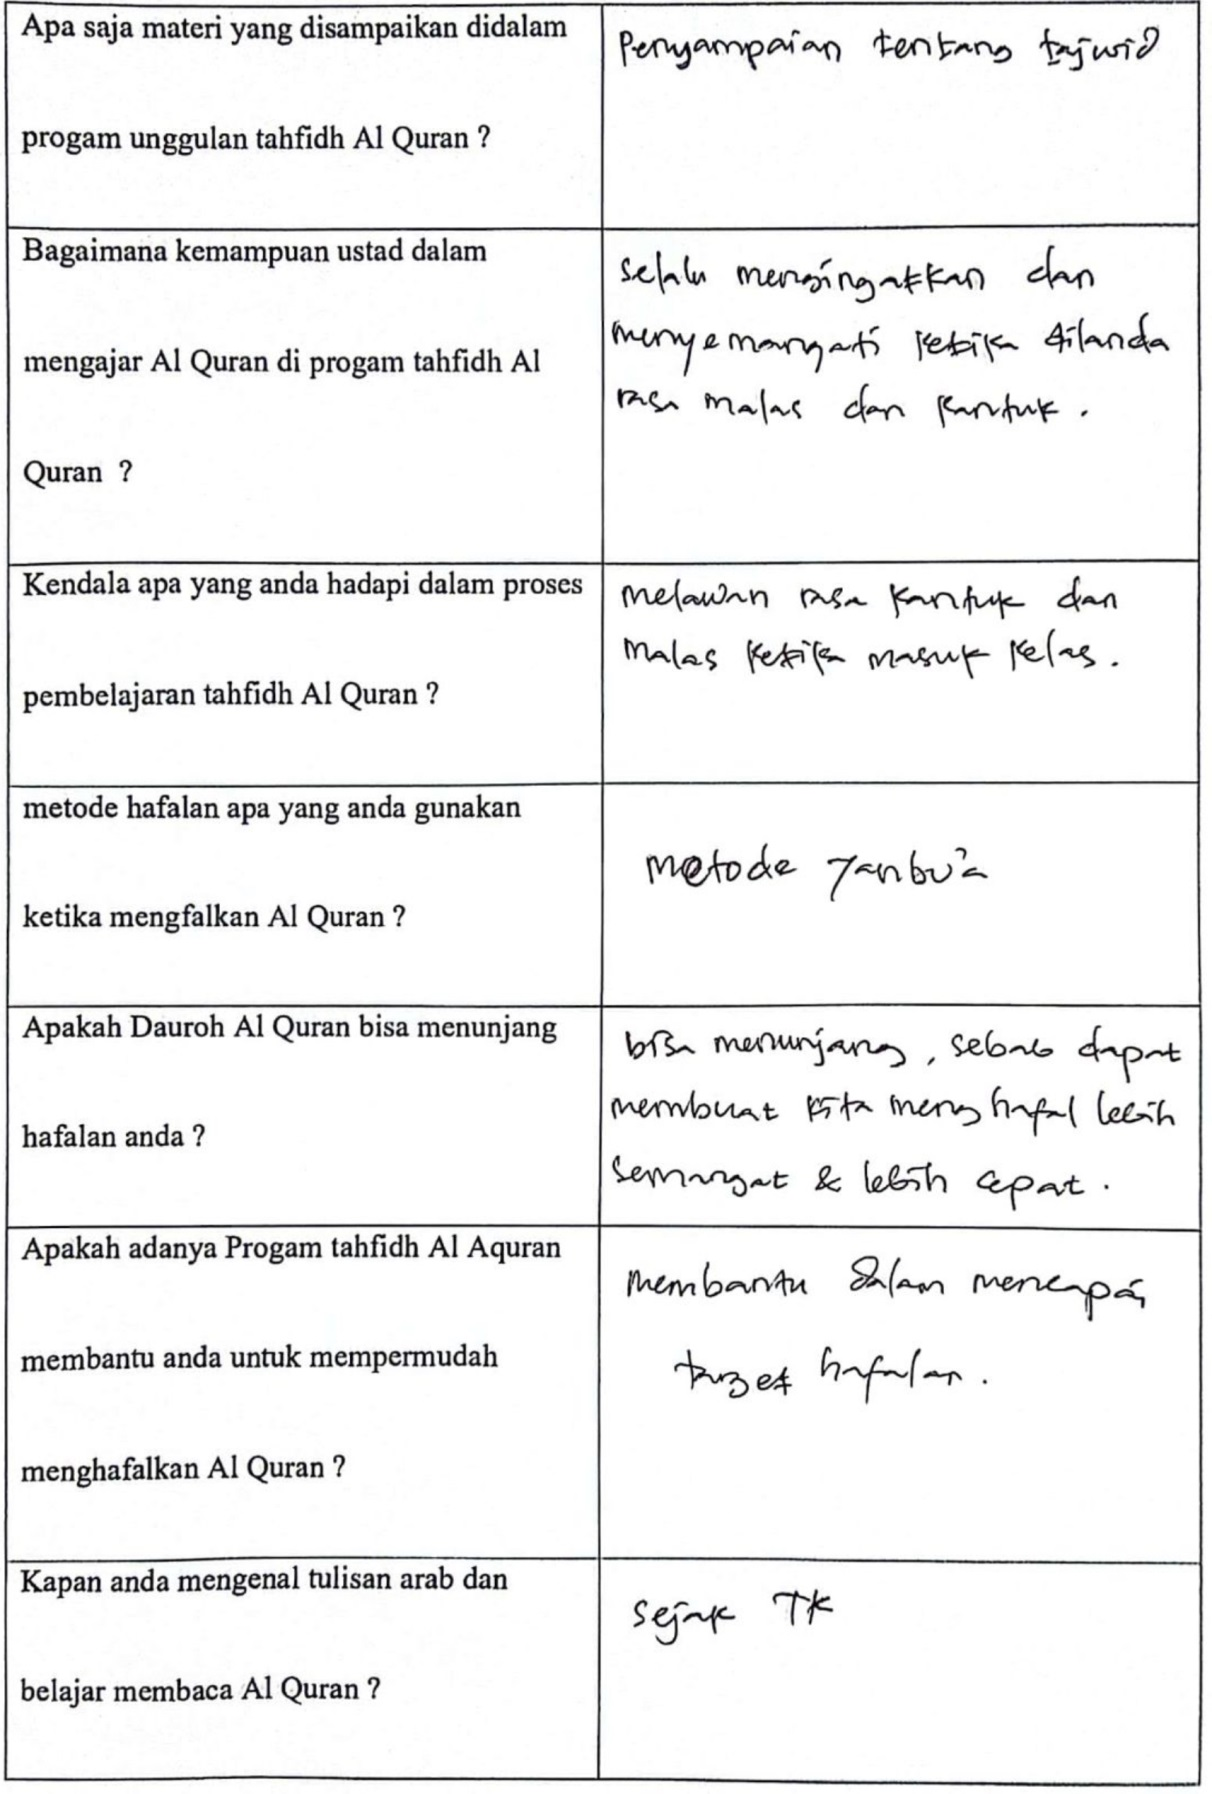 Apa saja materi yang disampaikan didalam
progam unggulan tahfidh Al Quran ?
Penyampaian tentang tajwid
Bagaimana kemampuan ustad dalam
mengajar Al Quran di progam tahfidh Al
Quran ?
selalu mengingatkan dan
menyemangati ketika dilanda
rasa malas dan kantuk.
Kendala apa yang anda hadapi dalam proses
pembelajaran tahfidh Al Quran ?
melawan rasa kantuk dan
malas ketika masuk kelas.
metode hafalan apa yang anda gunakan
ketika mengfalkan Al Quran ?
metode Yanbu'a
Apakah Dauroh Al Quran bisa menunjang
hafalan anda ?
bisa menunjang, sebab dapat
membuat kita menghafal lebih
semangat & lebih cepat.
Apakah adanya Progam tahfidh Al Aquran
membantu anda untuk mempermudah
menghafalkan Al Quran ?
membantu dalam mencapai
target hafalan.
Kapan anda mengenal tulisan arab dan
belajar membaca Al Quran ?
sejak TK